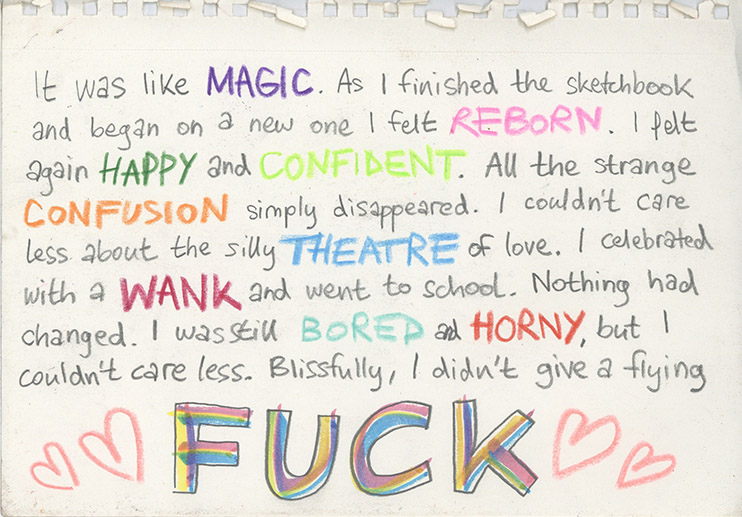 It was like MAGIC. As I finished the sketchbook
and began on a new one I felt REBORN. I felt
again HAPPY and CONFIDENT. All the strange
CONFUSION simply disappeared. I couldn't care
less about the silly THEATRE of love. I celebrated
with a WANK and went to school. Nothing had
changed. I was still BORED and HORNY, but I
couldn't care less. Blissfully, I didn't give a flying
FUCK